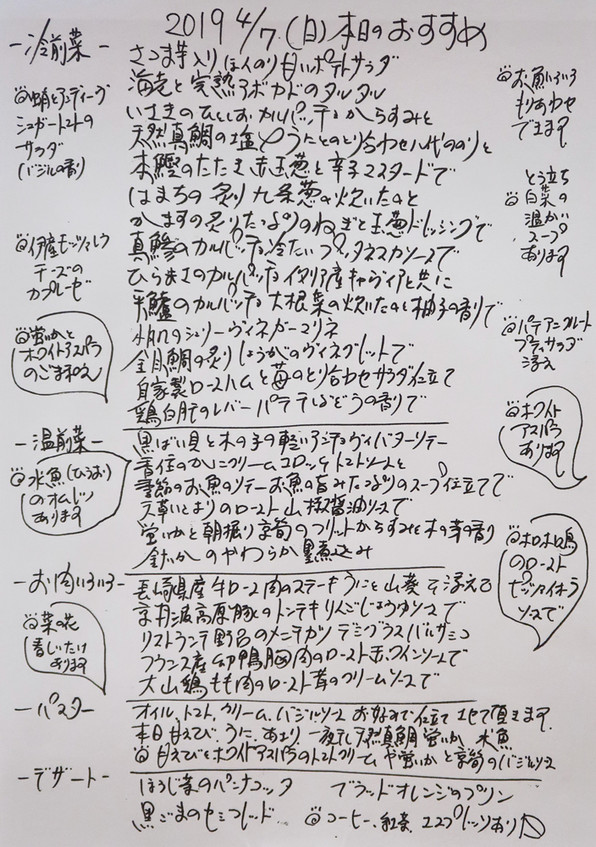 2019 4/7 (日) 本日のおすすめ
-冷前菜-
さつま芋入りほんのり甘いポテトサラダ
海老と完熟アボカドのタルタル
いさきのひとしおカルパッチョからすみと
天然真鯛の塩〆うにとのとり合わせ八代ののりと
本鰹のたたき赤玉葱と辛子マスタードで
はまちの炙り九条葱の炊いたんと
かますの炙りたっぷりのねぎと玉葱ドレッシングで
真鯵のカルパッチョ冷たいプッタネスカソースで
ひらまさのカルパッチョイタリア産キャヴィアと共に
平鱸のカルパッチョ大根菜の炊いたんと柚子の香りで
小肌のシェリーヴィネガーマリネ
金目鯛の炙りしょうがのヴィネグレットで
自家製ロースハムと苺のとり合わせサラダ仕立て
鶏白肝のレバーパテでぶどうの香りで
蛸とアンディーブ
シュガートマトの
サラダ
バジルの香り
伊産モッツァレラ
チーズの
カプレーゼ
蛍いかと
ホワイトアスパラ
のごま和え
お魚いろいろ
もりあわせ
できます
とう立ち
白菜の
温かい
スープ
あります
パテアンクルート
プティサラダ
添え
ホワイト
アスパラ
あります
-温前菜-
黒ばい貝と木の子の軽いアンチョヴィバターソテー
香住のかにクリームコロッケトマトソースと
季節のお魚のソテーお魚の旨みたっぷりのスープ仕立てで
天草いとよりのロースト山椒醤油ソースで
蛍いかと朝掘り京筍のフリットからすみと木の芽の香り
のやわらか煮込み
水魚(ひうお)
のオムレツ
あります
ホロホロ鳥
のロースト
ソースで
-お肉いろいろ-
長崎県産牛ロース肉のステーキうにと山葵を添えて
京丹波高原豚のトンテキりんごしょうゆソースで
リストランテ野呂のメンチカツデミグラスバルサミコ
フランス産鴨胸肉のロースト赤ワインソースで
大山鶏もも肉のロースト茸のクリームソースで
菜の花
香しいたけ
あります
-パスタ-
オイル、トマト、クリーム、バジルソースお好みで仕立てさせて頂きます
本日甘えび、うに、あさり、一夜干天然真鯛蛍いか 水魚
甘えびとホワイトアスパラのトマトクリームや蛍いかと京筍のバジルソース
-デザート-
ほうじ茶のパンナコッタ ブラッドオレンジのプリン
黒ごまのセミフレッド コーヒー、紅茶、エスプレッソあり